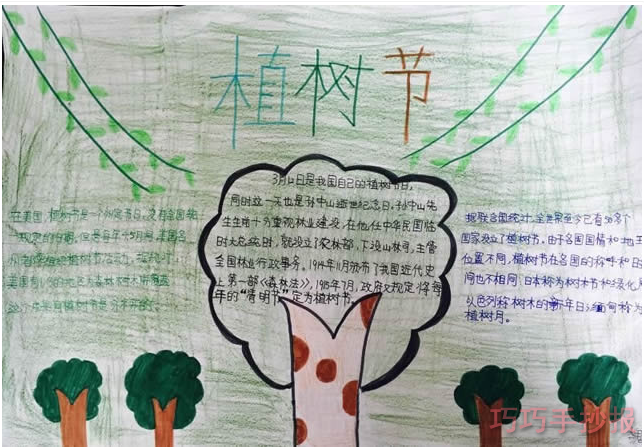 植树节
3月12日是我国自己的植树节日,
同时这一天也是孙中山逝世纪念日,孙中山先
生生前十分重视林业建设,在他任中华民国临
时大总统时,就设立了农林部,下设山林司,主管
全国林业行政事务。1914年11月颁布了我国近代史
上第一部《森林法》,1915年7月,政府又规定将每
年的“清明节”定为植树节。
在美国,植树节是一个州定节日,没有全国统
规定的日期。但是每年4
据联合国统计,全世界至今已有50多个
国家设立了植树节。由于各国国情和地理
位置不同,植树节在各国的称呼和日
间也不相同,日本称为树木节和绿化
以色列称树木的新年日,缅甸称为
植树月。
巧巧手抄报